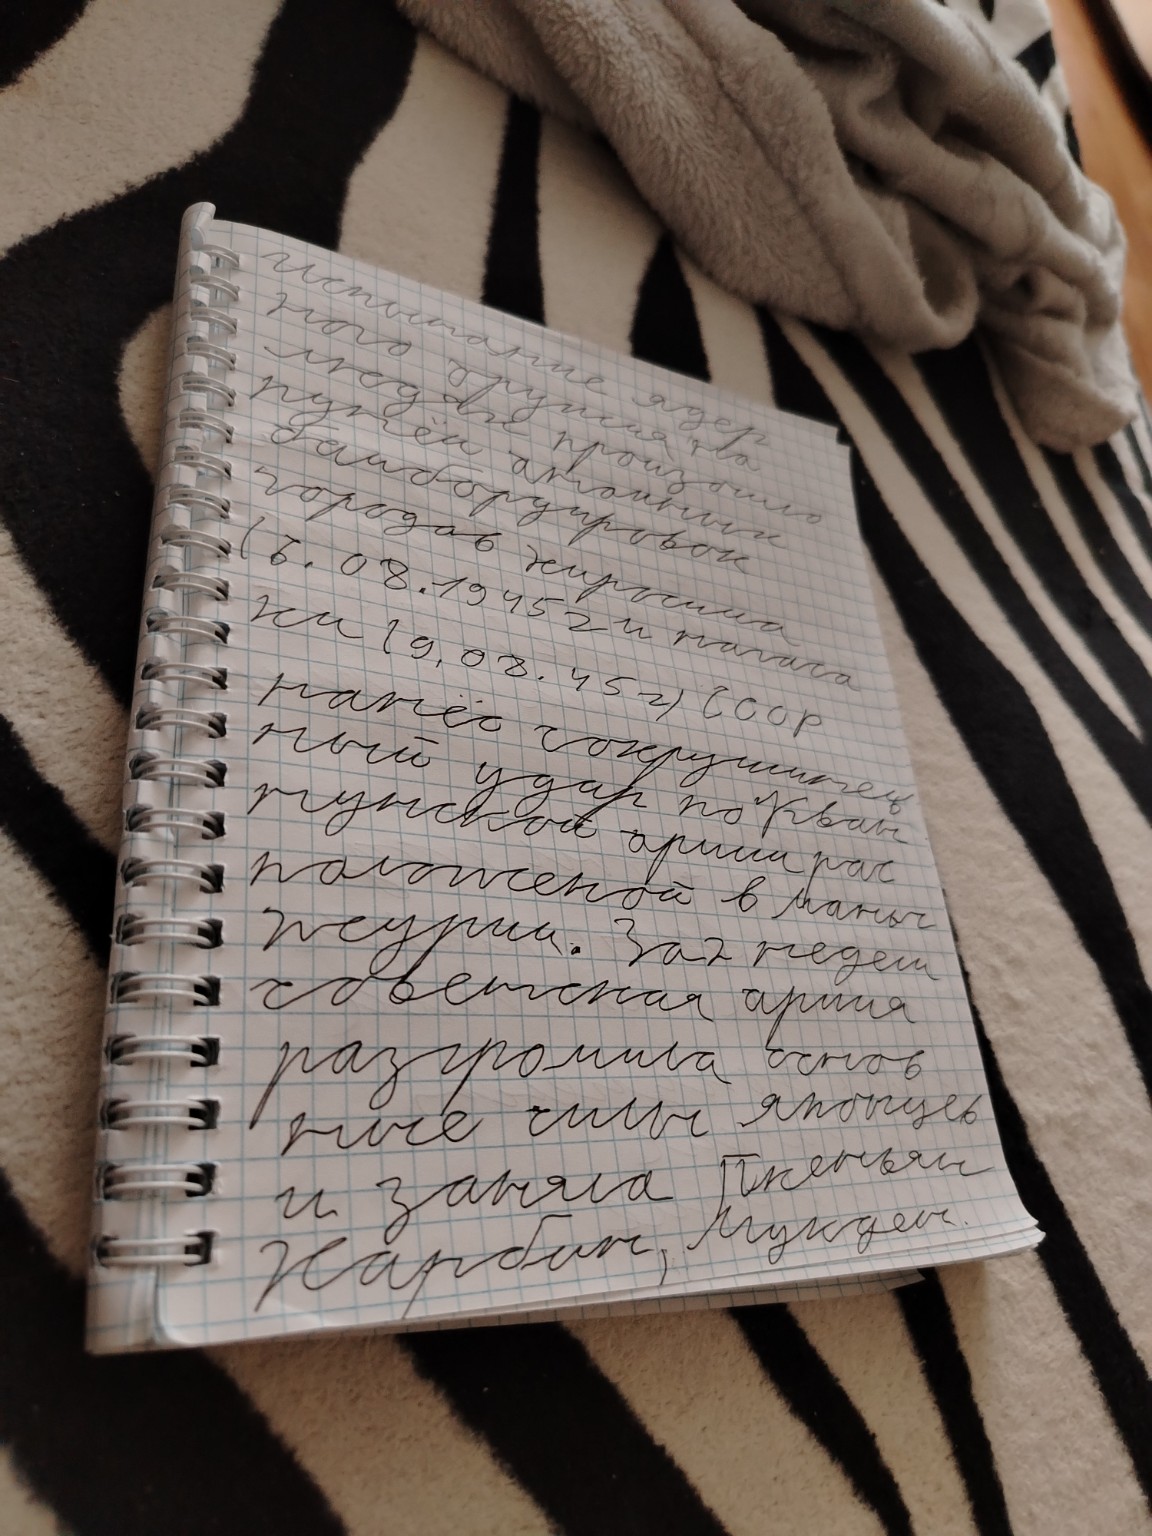 испытание ядер
ного оружия на
людях произошло
путём атомных
бамбордировок
городов Хиросима
(6.08.1945г и нагаса
ки (9.08.45г) СССР
нанёс сокрушитель
ный удар по Кван
тунской армии рас
положеной в Мань
чжурии. За 2 недели
советская армия
разгромила основ
ные силы японцев
и заняла Пхеньян
Харбин, Мукден.